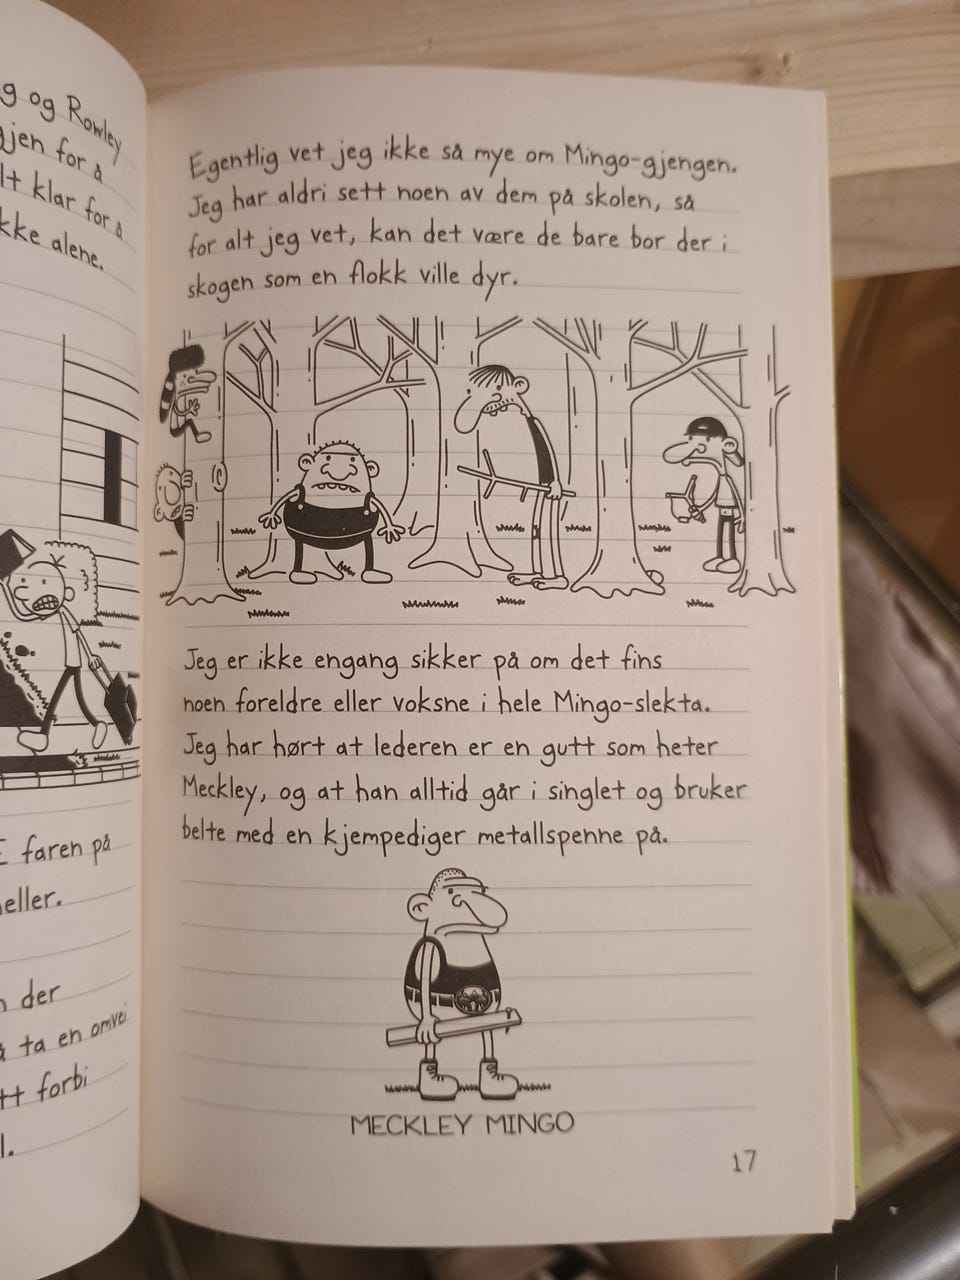 g og Rowley
jen for å
lt klar for å
kke alene.
faren på
eller.
der
å ta en omvei
tt forbi
l.
Egentlig vet jeg ikke så mye om Mingo-gjengen.
Jeg har aldri sett noen av dem på skolen, så
for alt jeg vet, kan det være de bare bor der i
skogen som en flokk ville dyr.
Jeg er ikke engang sikker på om det fins
noen foreldre eller voksne i hele Mingo-slekta.
Jeg har hørt at lederen er en gutt som heter
Meckley, og at han alltid går i singlet og bruker
belte med en kjempediger metallspenne på.
MECKLEY MINGO
17